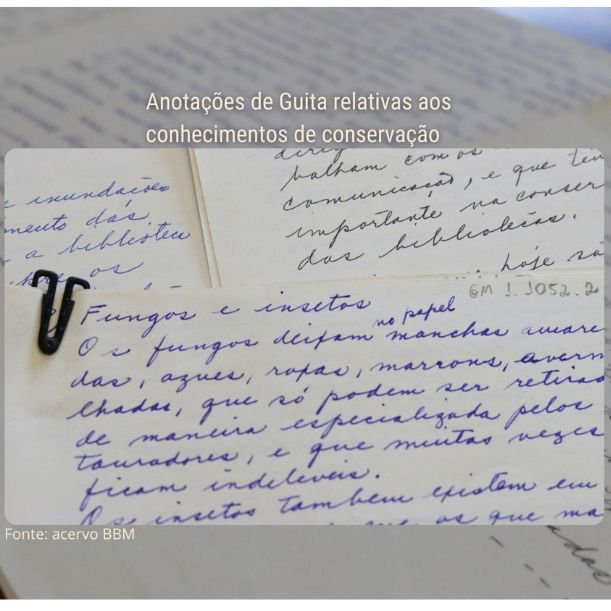 Anotações de Guita relativas aos
conhecimentos de conservação
balham com os
comunicação, e que tem
importante na conser
das bibliotecas.
hoje
e inundações
mento das
a bibliotec
os
GM 1. J052.2
Fungos e insetos
no papel
Os fungos deixam manchas amare
das, azues, roxas, marrons, averm
lhadas, que só podem ser retirad
de maneira especializada pelos
tauradores, e que muitas vezes
ficam indeleveis.
Os insetos tambem existem em
os que ma
Fonte: acervo BBM